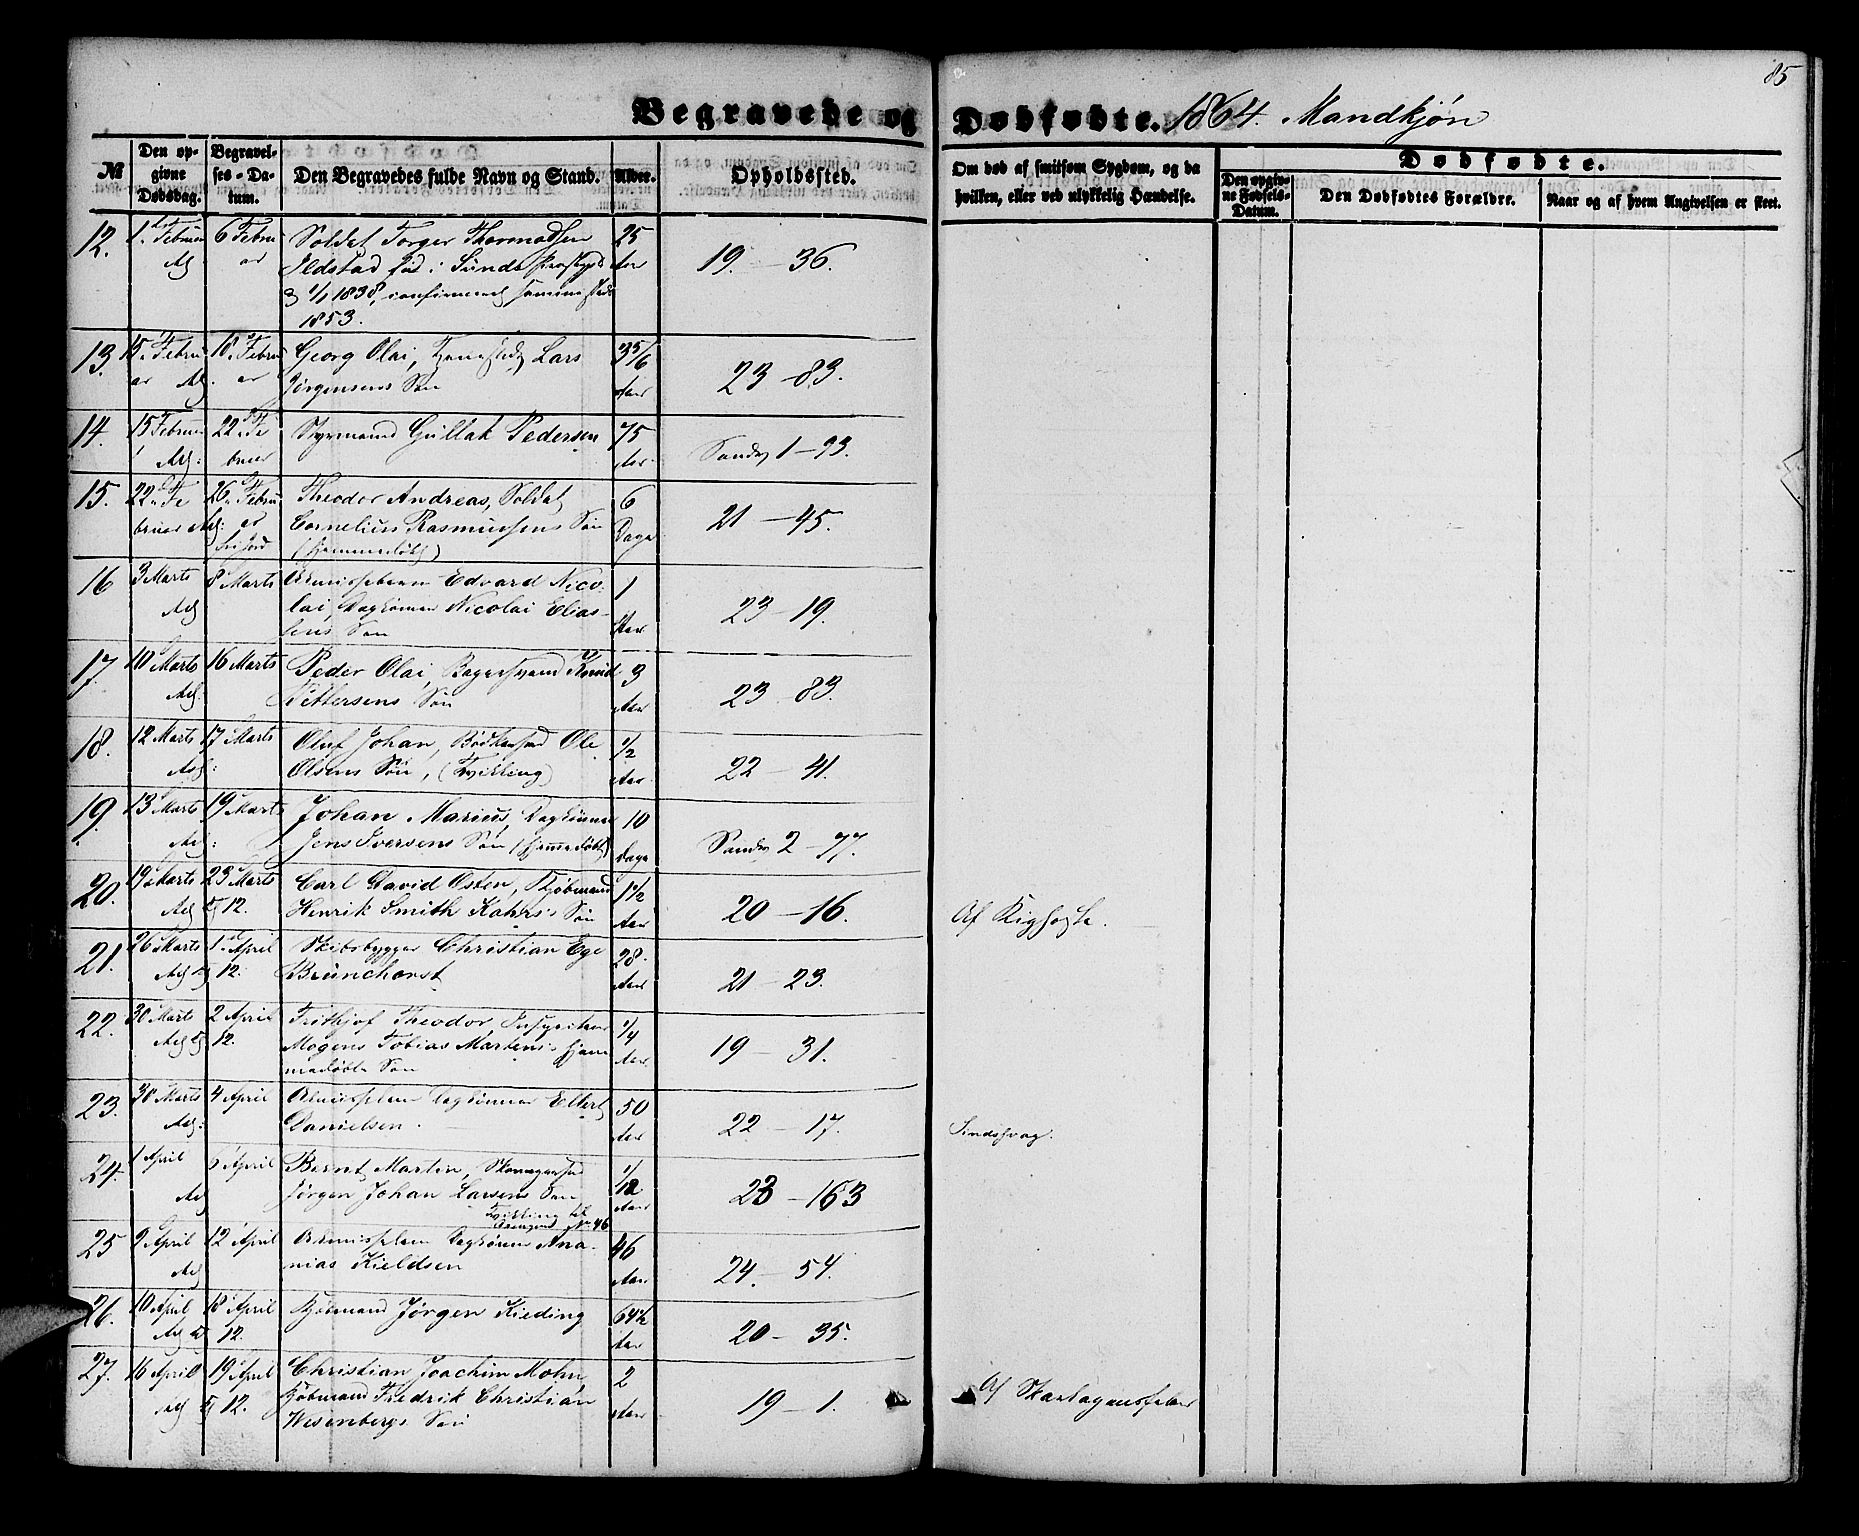 85
Begravede og Dødfødte. 1864. Mandkjøn
№
Den opgivne Dødsdag.
Begravelses-Datum.
Den Begravedes fulde Navn og Stand.
Alder.
Opholdssted.
Om død af smitsom Sygdom, og da hvilken, eller ved ulykkelig Hændelse.
Dødfødte.
Den opgivne Fødsels-Datum.
Den Dødfødtes Forældre.
Naar og af hvem Angivelsen er skeet.
12. 1 Februar 6 Februar Soldat Torger Thormodsen 25 Aar 19.—36.
Ildstad født i Sunds Præstegjeld
1/1 1838, confirmeret sammesteds
1853.
13. 15 Februar 18 Februar Georg Olai, Lars 3 5/6 Aar 23—83.
Jørgensens Søn
14. 15 Februar 22 Februar Styrmand Gullak Pedersen 75 Aar Sandv 1—93.
15. 22 Februar 26 Februar Theodor Andreas, Soldat 6 Dage 21—45.
Cornelius Rasmussens Søn
(hjemmedøbt)
16 3 Marts 8 Marts Almissebarn Edvard Nico- 1 Aar 23—19.
lai, Dagkarl Nicolai Elias-
sens Søn
17. 10 Marts 16 Marts Peder Olai, Bagersvend Knud 3 Aar 23 83.
Vettersens Søn
18. 12 Marts 17 Marts Oluf Johan, Bødkersvd Ole 1/2 Aar 22—41.
Olsens Søn, (Tvilling)
19. 13 Marts 19 Marts Johan Marius, 10 Dage Sandv 2—77.
Jens Iversens Søn (hjemmedøbt)
20. 19 Marts 23 Marts Carl David Osten, Kjøbmand 1 1/2 Aar 20—16. Af Kighoste.
Kl 12. Henrik Smith Kahrs's Søn
21. 26 Marts 1 April Skibsbygger Christian Ege 28 Aar 21—23.
Kl 12. Brunchorst
22. 30 Marts 2 April Frithjof Theodor, 1/4 Aar 19—31.
Kl 12. Mogens Tobias Martens hjem-
medøbte Søn
23. 30 Marts 4 April Almisselem Ellert 50 Aar 22—17. Sindssvag.
Danielsen.
24. 1 April 5 April Bernt Martin, 1/12 Aar 23—163
Jørgen Johan Larsens Søn
Tvilling til No 46
25 9 April 12 April Almisselem Ana- 46 Aar 24.—54.
nias Kieldsen
26. 10 April 18 April Kjøbmand Jørgen Kieding 64 1/2 Aar 20—35.
Kl 12.
27. 16 April 19 April Christian Joachim Mohn, 2 Aar 19—1. Af Skarlagensfeber
Kl 12. Kjøbmand Fredrik Christian
Wesenbergs Søn